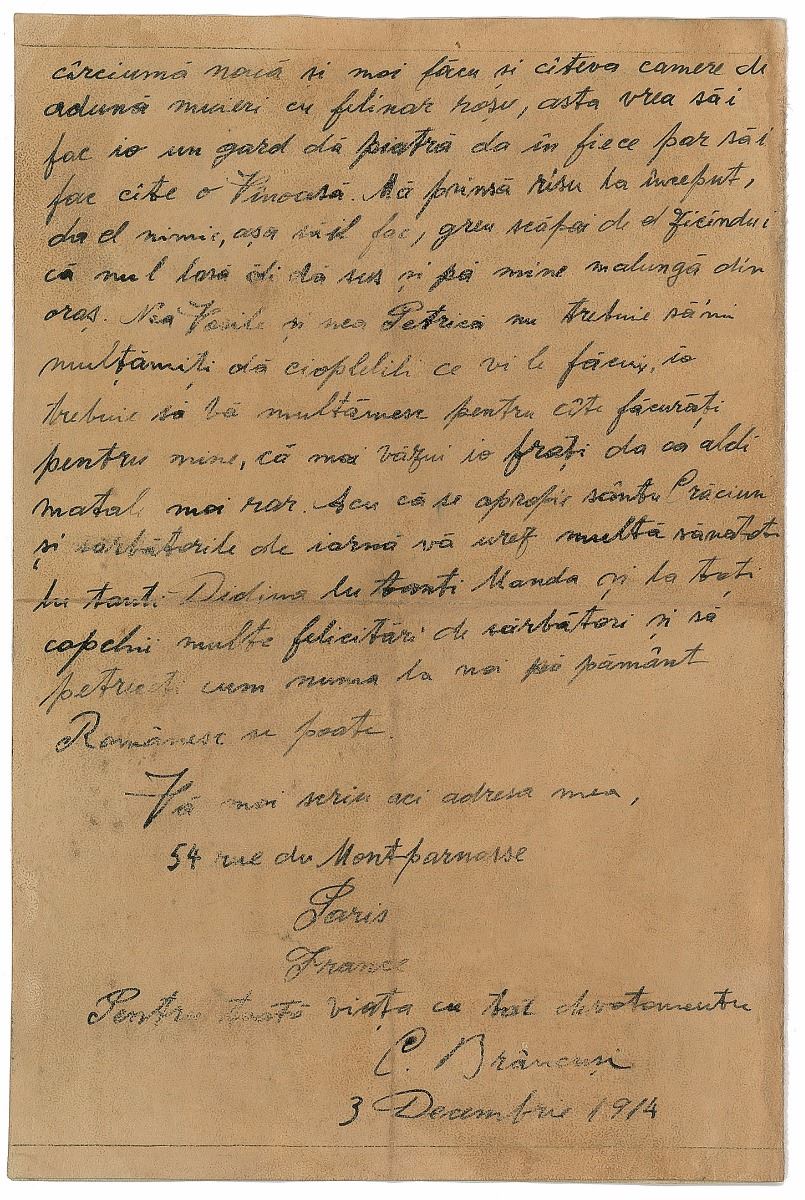 cîrciumă nouă si mai făcu si cîteva camere de
adună muieri cu felinar roșu, asta vrea să i
fac io un gard dă piatră da în fiece par să i
fac cîte o Vinoasă. Mă prinsă risu la început,
da el nimic, așa să il fac, greu scăpai de el zicîndu i
că nu l lasă di dă sus și pă mine malungă din
oraș. Nea Vasile și nea Petrică nu trebuie sămi
mulțămiți dă ciopleli ce vi le făcui, io
trebuie să vă multămesc pentru cîte făcurăți
pentru mine, că mai văzui io frați da ca aldi
matale mai rar. Acu că se apropie sântu Crăciun
și sărbătorile de iarnă vă urez multă sănătate
lu tanti Didina lu tanti Manda și la toți
copchii multe felicitări de sărbători și să
petreceți cum numa la noi pă pământ
Românesc se poate.
Vă mai scriu aci adresa mea,
54 rue du Montparnasse
Paris
France
Pentru toată viața cu tot devotamentu
C. Brâncuși
3 Decembrie 1914